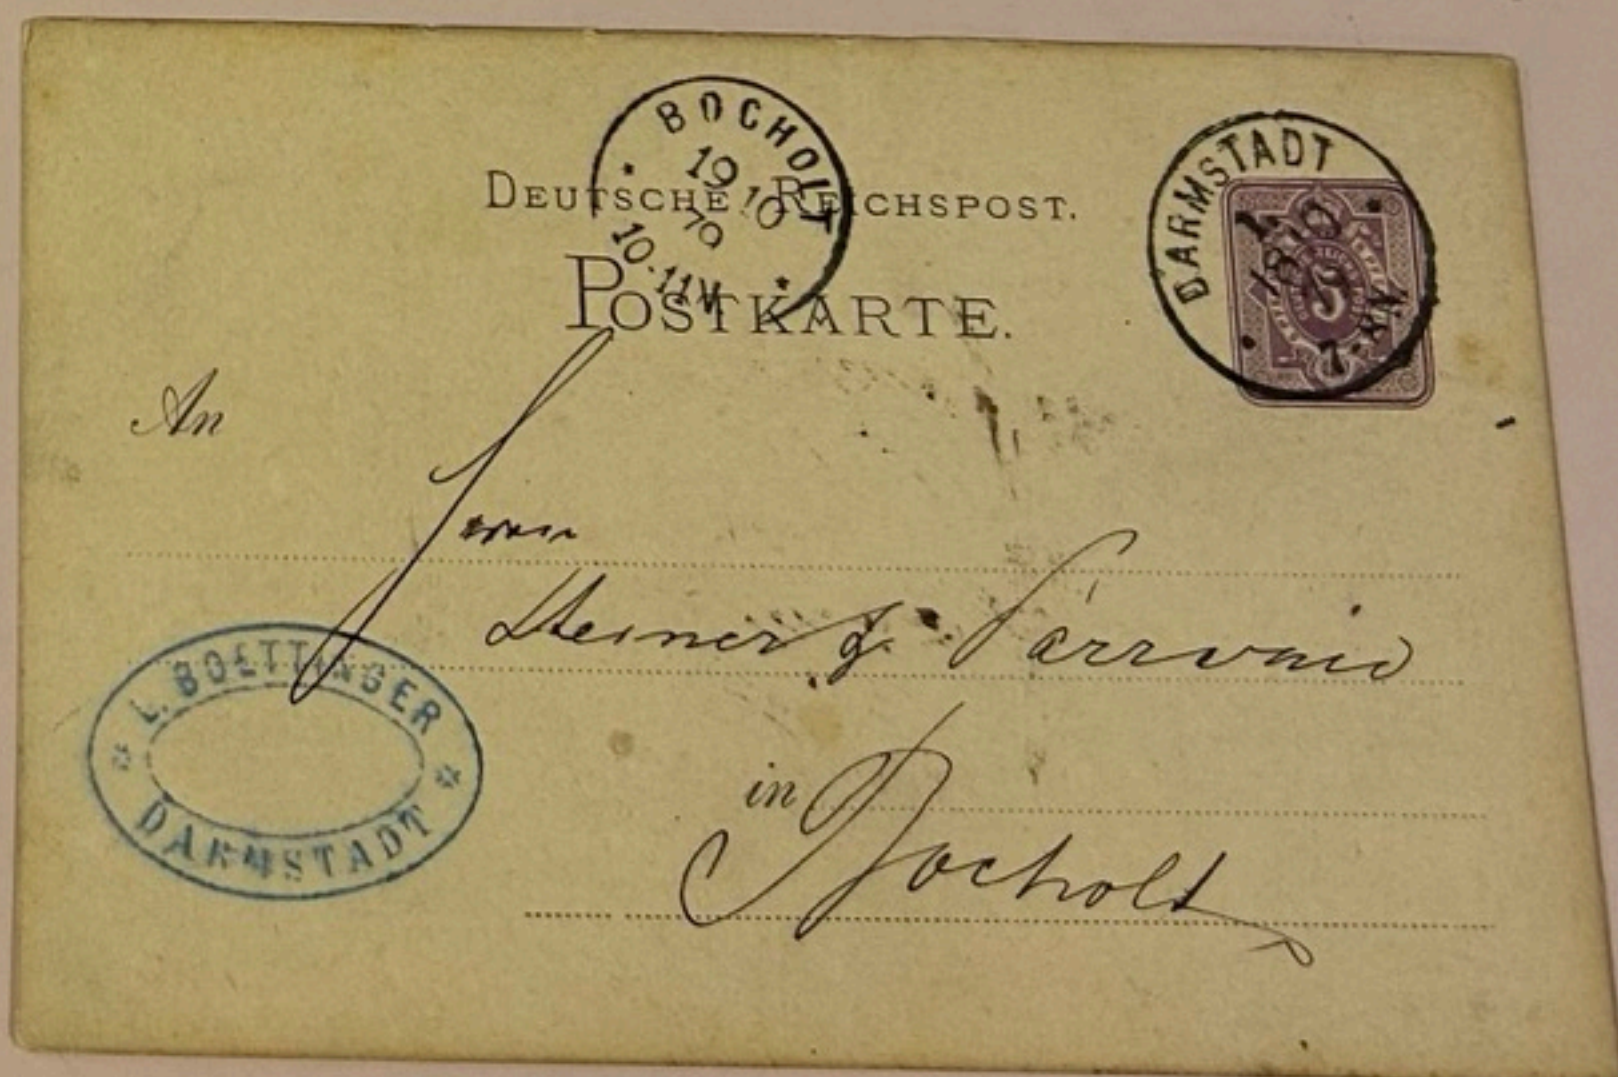 BOCHOLT
19 10
79
10-11V
DEUTSCHE REICHSPOST.
POSTKARTE.
DARMSTADT
18 10
5
7-8N
An
Herrn
in
Bocholt
L. BOETTINGER
DARMSTADT